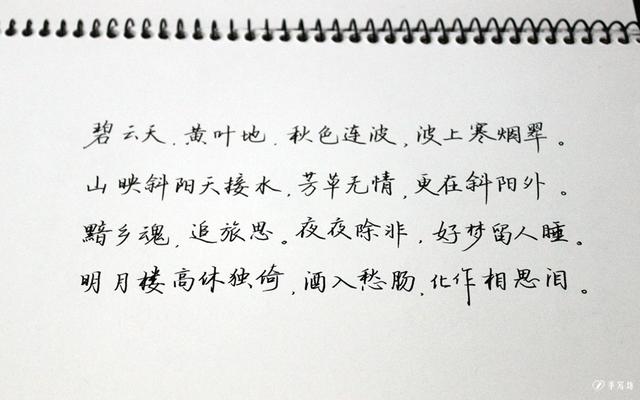 碧云天，黄叶地，秋色连波，波上寒烟翠。
山映斜阳天接水，芳草无情，更在斜阳外。
黯乡魂，追旅思。夜夜除非，好梦留人睡。
明月楼高休独倚，酒入愁肠，化作相思泪。